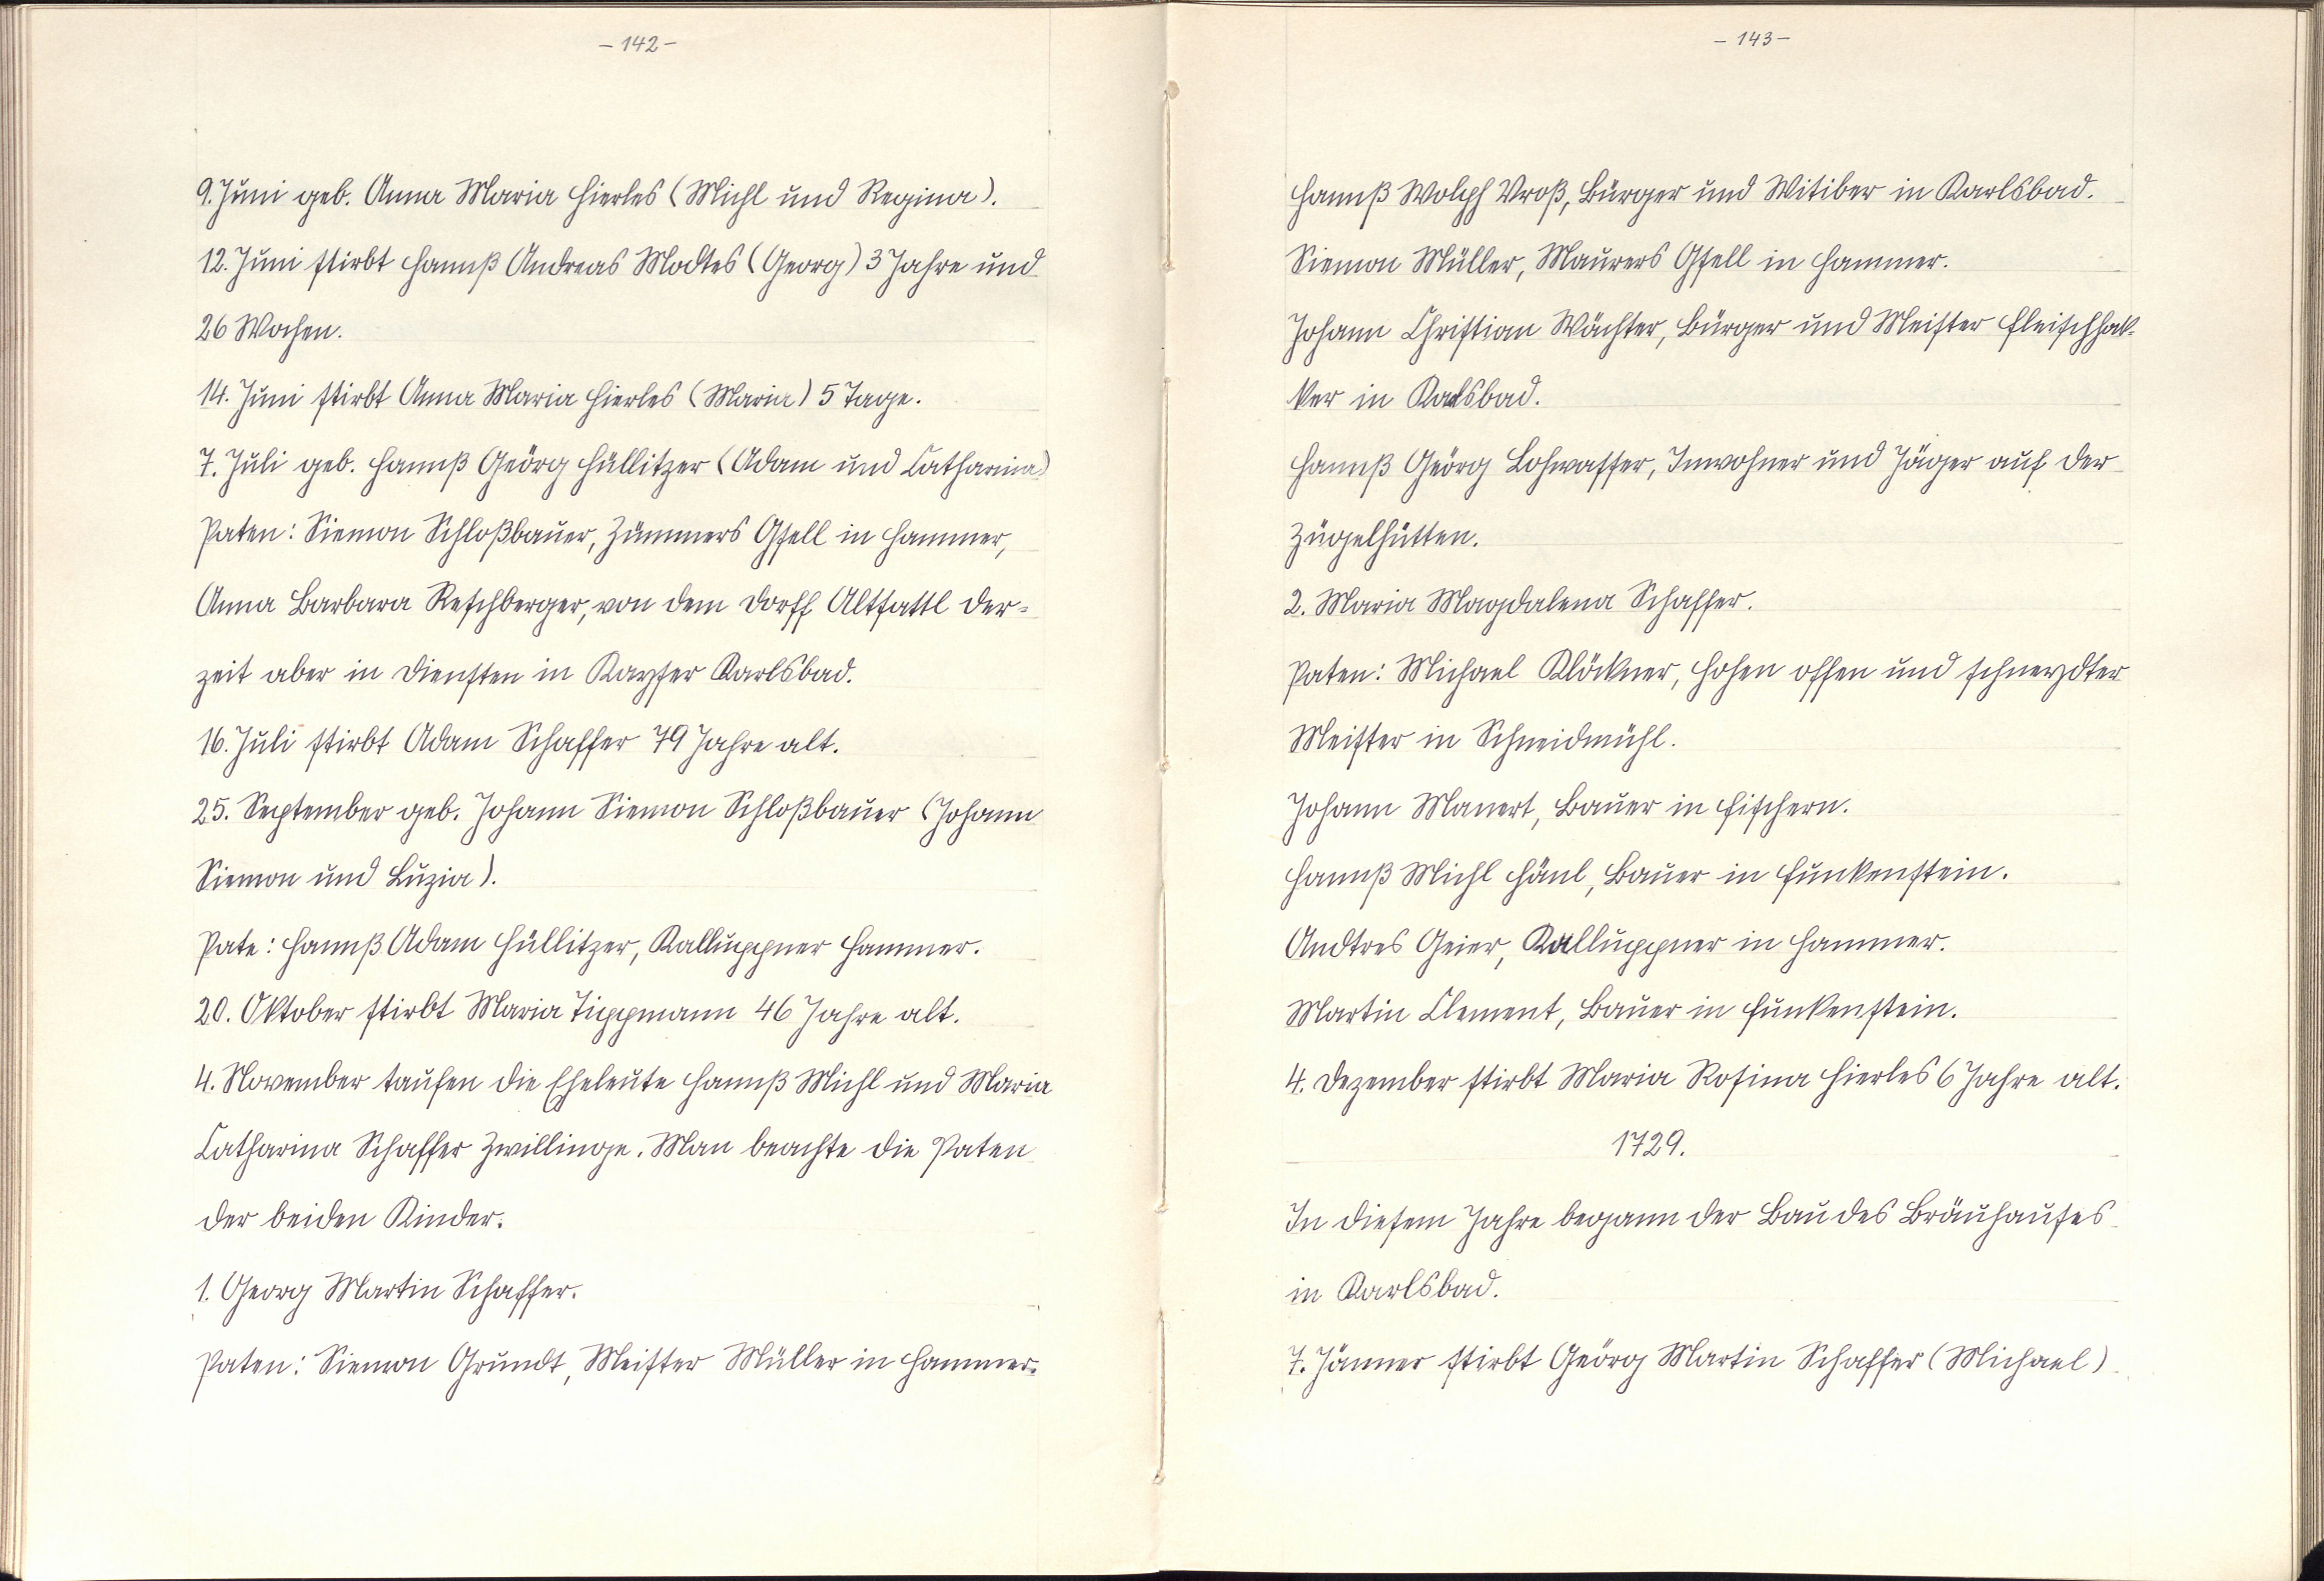 - 142 -
9. Juni geb. Anna Maria Hierles (Michl und Regina).
12. Juni stirbt Hannß Andreas Modtes (Georg) 3 Jahre und
26 Wochen.
14. Juni stirbt Anna Maria Hierles (Maria) 5 Tage.
7. Juli geb. Hannß Geörg Hüllitzer (Adam und Catharina)
Paten: Siemon Schloßbauer, Zümmers Gsell in Hammer,
Anna Barbara Reschberger, von dem Dorff Altsattl der-
zeit aber in Diensten in Kayser Karlsbad.
16. Juli stirbt Adam Schaffer 79 Jahre alt.
25. September geb. Johann Siemon Schloßbauer (Johann
Siemon und Luzia).
Pate: Hannß Adam Hüllitzer, Kalluppner Hammer.
20. Oktober stirbt Maria Tippmann 46 Jahre alt.
4. November taufen die Eheleute Hannß Michl und Maria
Catharina Schaffer Zwillinge. Man beachte die Paten
der beiden Kinder.
1. Georg Martin Schaffer.
Paten: Siemon Grundt, Meister Müller in Hammer.
- 143 -
Hannß Wolph Vroß, Bürger und Witiber in Karlsbad.
Siemon Müller, Maurers Gsell in Hammer.
Johann Christian Wächter, Bürger und Meister Fleischhak-
ker in Karlsbad.
Hannß Geörg Lohwasser, Inwohner und Jäger auf der
Zügelhütten.
2. Maria Magdalena Schaffer.
Paten: Michael Klöckner, Hohen offen und schneydter
Meister in Schneidmühl.
Johann Manert, Bauer in Fischern.
Hannß Michl Hänl, Bauer in Funkenstein.
Andtres Geier, Kalluppner in Hammer.
Martin Clement, Bauer in Funkenstein.
4. Dezember stirbt Maria Rosina Hierles 6 Jahre alt.
1729.
In diesem Jahre begann der Bau des Bräuhauses
in Karlsbad.
7. Jänner stirbt Geörg Martin Schaffer (Michael)